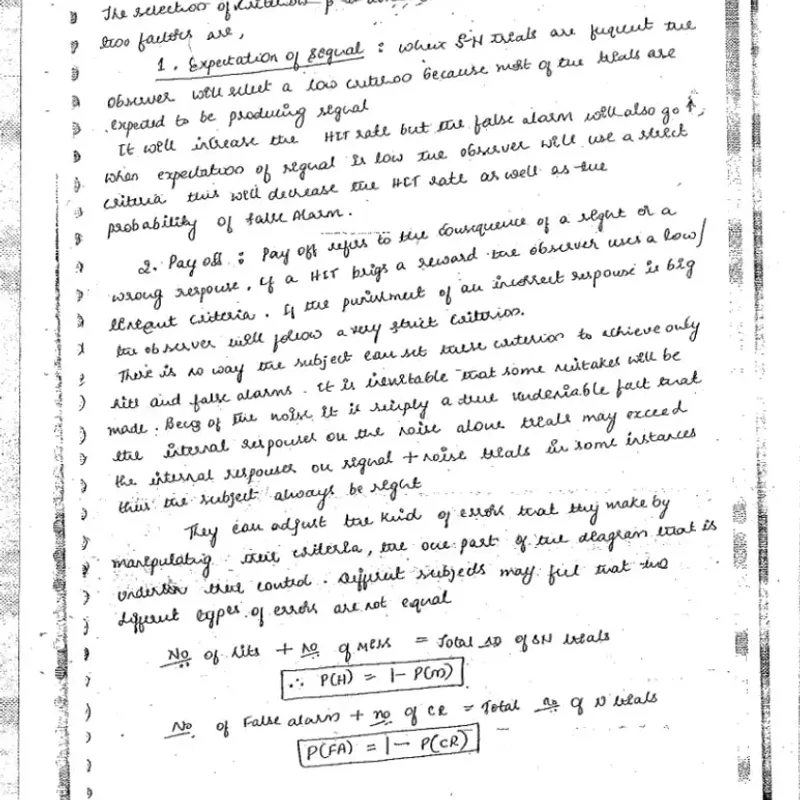 The selection of criterion β
two factors are,
1. Expectation of Segnal : when S-N treals are frequent the
observer will select a low criterioo because most of the treals are
expected to be producing segnal
It will increase the HIT rate but the false alarm will also go ↑,
when expectatioo of segnal is low the observer will use a strict
criteria this will decrease the HIT rate as well as the
probability of false Alarm.
2. Pay off : Pay off refers to the Consequence of a reght or a
wrong response, if a HIT brigs a reward the observer uses a low/
leneant criteria. If the punishment of an incorrect response is big
the observer will follow a very strict Criterion.
There is no way the subject can set these criterion to achieve only
hits and false alarms. It is inevitable that some mistakes will be
made. Becoz of the noise it is simply a true undeniable fact that
the internal responses on the noise alone treals may exceed
the internal responses on segnal + noise treals in some instances
thus the subject always be reght
They can adjust the kind of errors that they make by
manpulating their criteria, the one part of the deagram that is
under their control. Different subjects may feel that two
different types of errors are not equal
No of hits + no of Mess = Total no of SN treals
∴ P(H) = 1- P(m)
No of False alarm + no of CR = Total no of N treals
P(FA) = 1- P(CR)